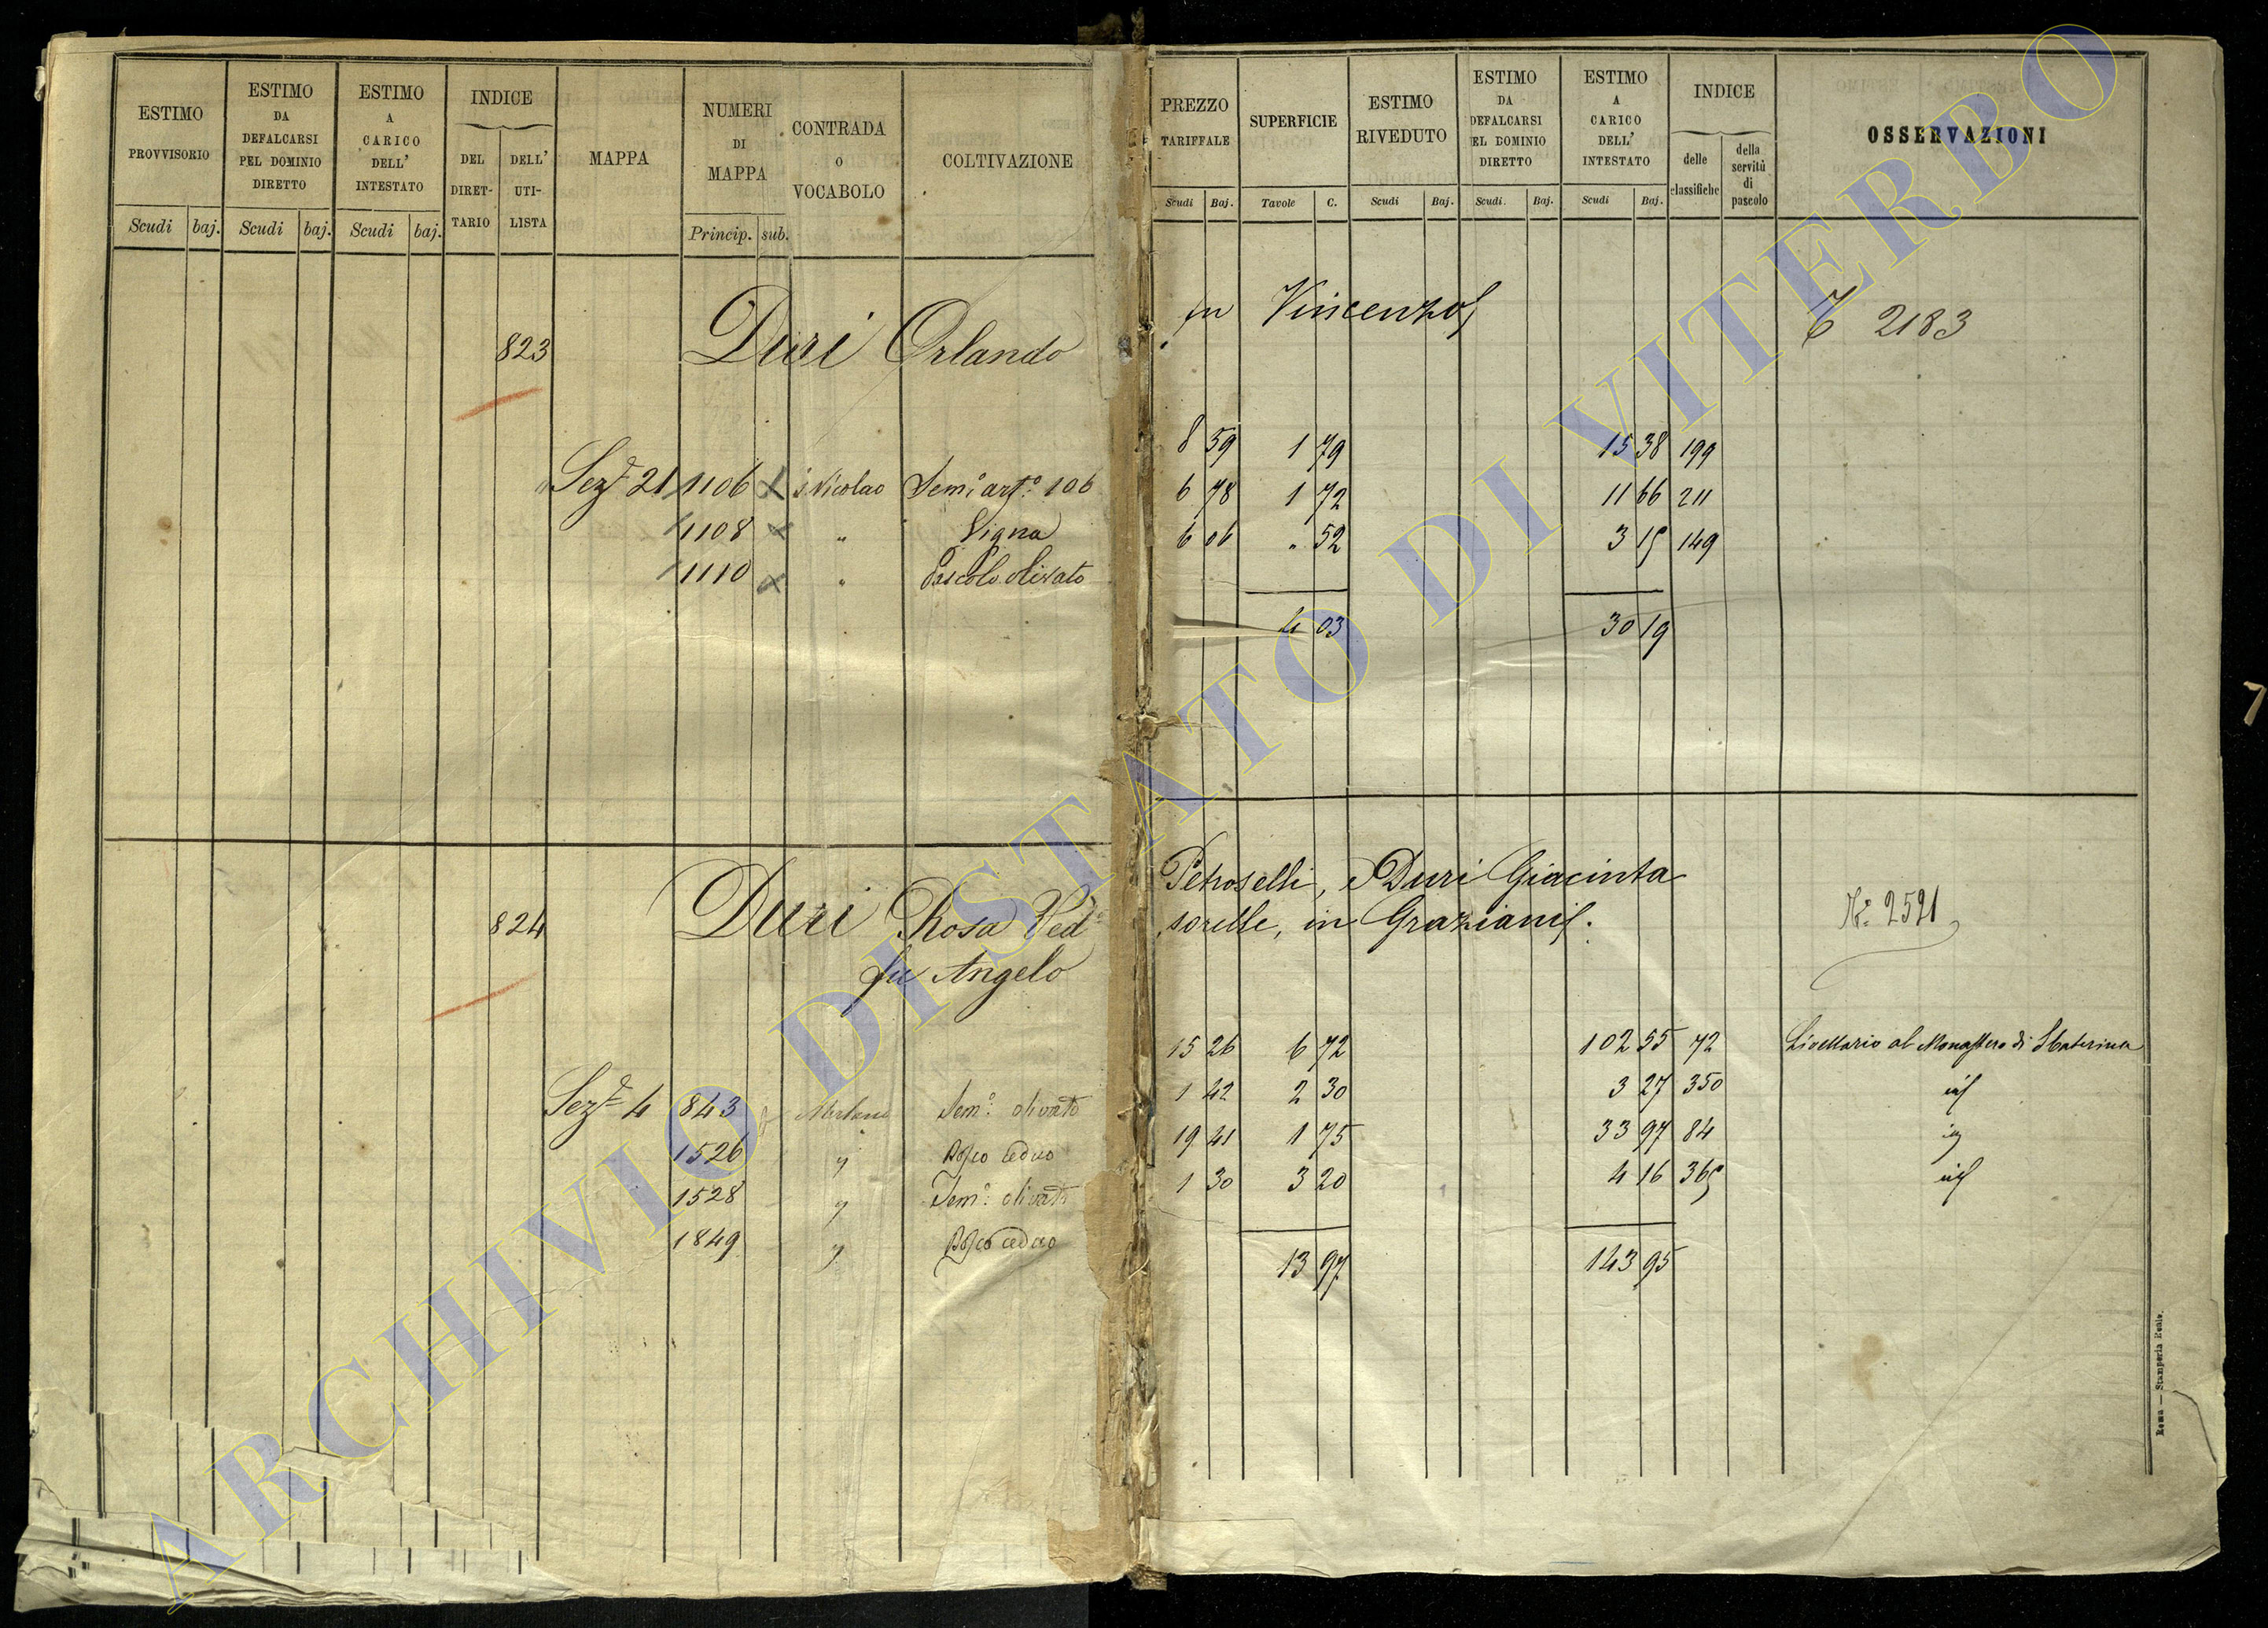 ESTIMO PROVVISORIO
ESTIMO DA DEFALCARSI PEL DOMINIO DIRETTO
ESTIMO A CARICO DELL' INTESTATO
INDICE
DEL DIRETTARIO
DELL' UTILISTA
MAPPA
NUMERI DI MAPPA
CONTRADA O VOCABOLO
COLTIVAZIONE
Scudi baj. Scudi baj. Scudi baj. Princip. sub.
PREZZO TARIFFALE
SUPERFICIE
ESTIMO RIVEDUTO
ESTIMO DA DEFALCARSI EL DOMINIO DIRETTO
ESTIMO A CARICO DELL' INTESTATO
INDICE
delle classifiche
della servitù di pascolo
OSSERVAZIONI
Scudi Baj. Tavole C. Scudi Baj. Scudi. Baj. Scudi Baj.
823 Duri Orlando fu Vincenzo 2183
Sez.e 21 1106 S. Nicolao Sem.o art.o 106 8 59 1 79 15 38 199
1108 " Vigna 6 78 1 72 11 66 211
1110 " Pascolo olivato 6 06 " 52 3 15 149
4 03 30 19
824 Duri Rosa Ved.a Petroselli, e Duri Giacinta
fu Angelo sorelle, in Graziani. N.o 2521
Sez.e 4 843 Sem.o olivato 15 26 6 72 102 55 72 Livellario al Monastero di S Caterina
1526 " Bosco ceduo 1 42 2 30 3 27 350 id
1528 " Sem.o olivato 19 41 1 75 33 97 84 id
1849 " Bosco ceduo 1 30 3 20 4 16 365 id
13 97 143 95
Roma — Stamperia Reale.
ARCHIVIO DI STATO DI VITERBO